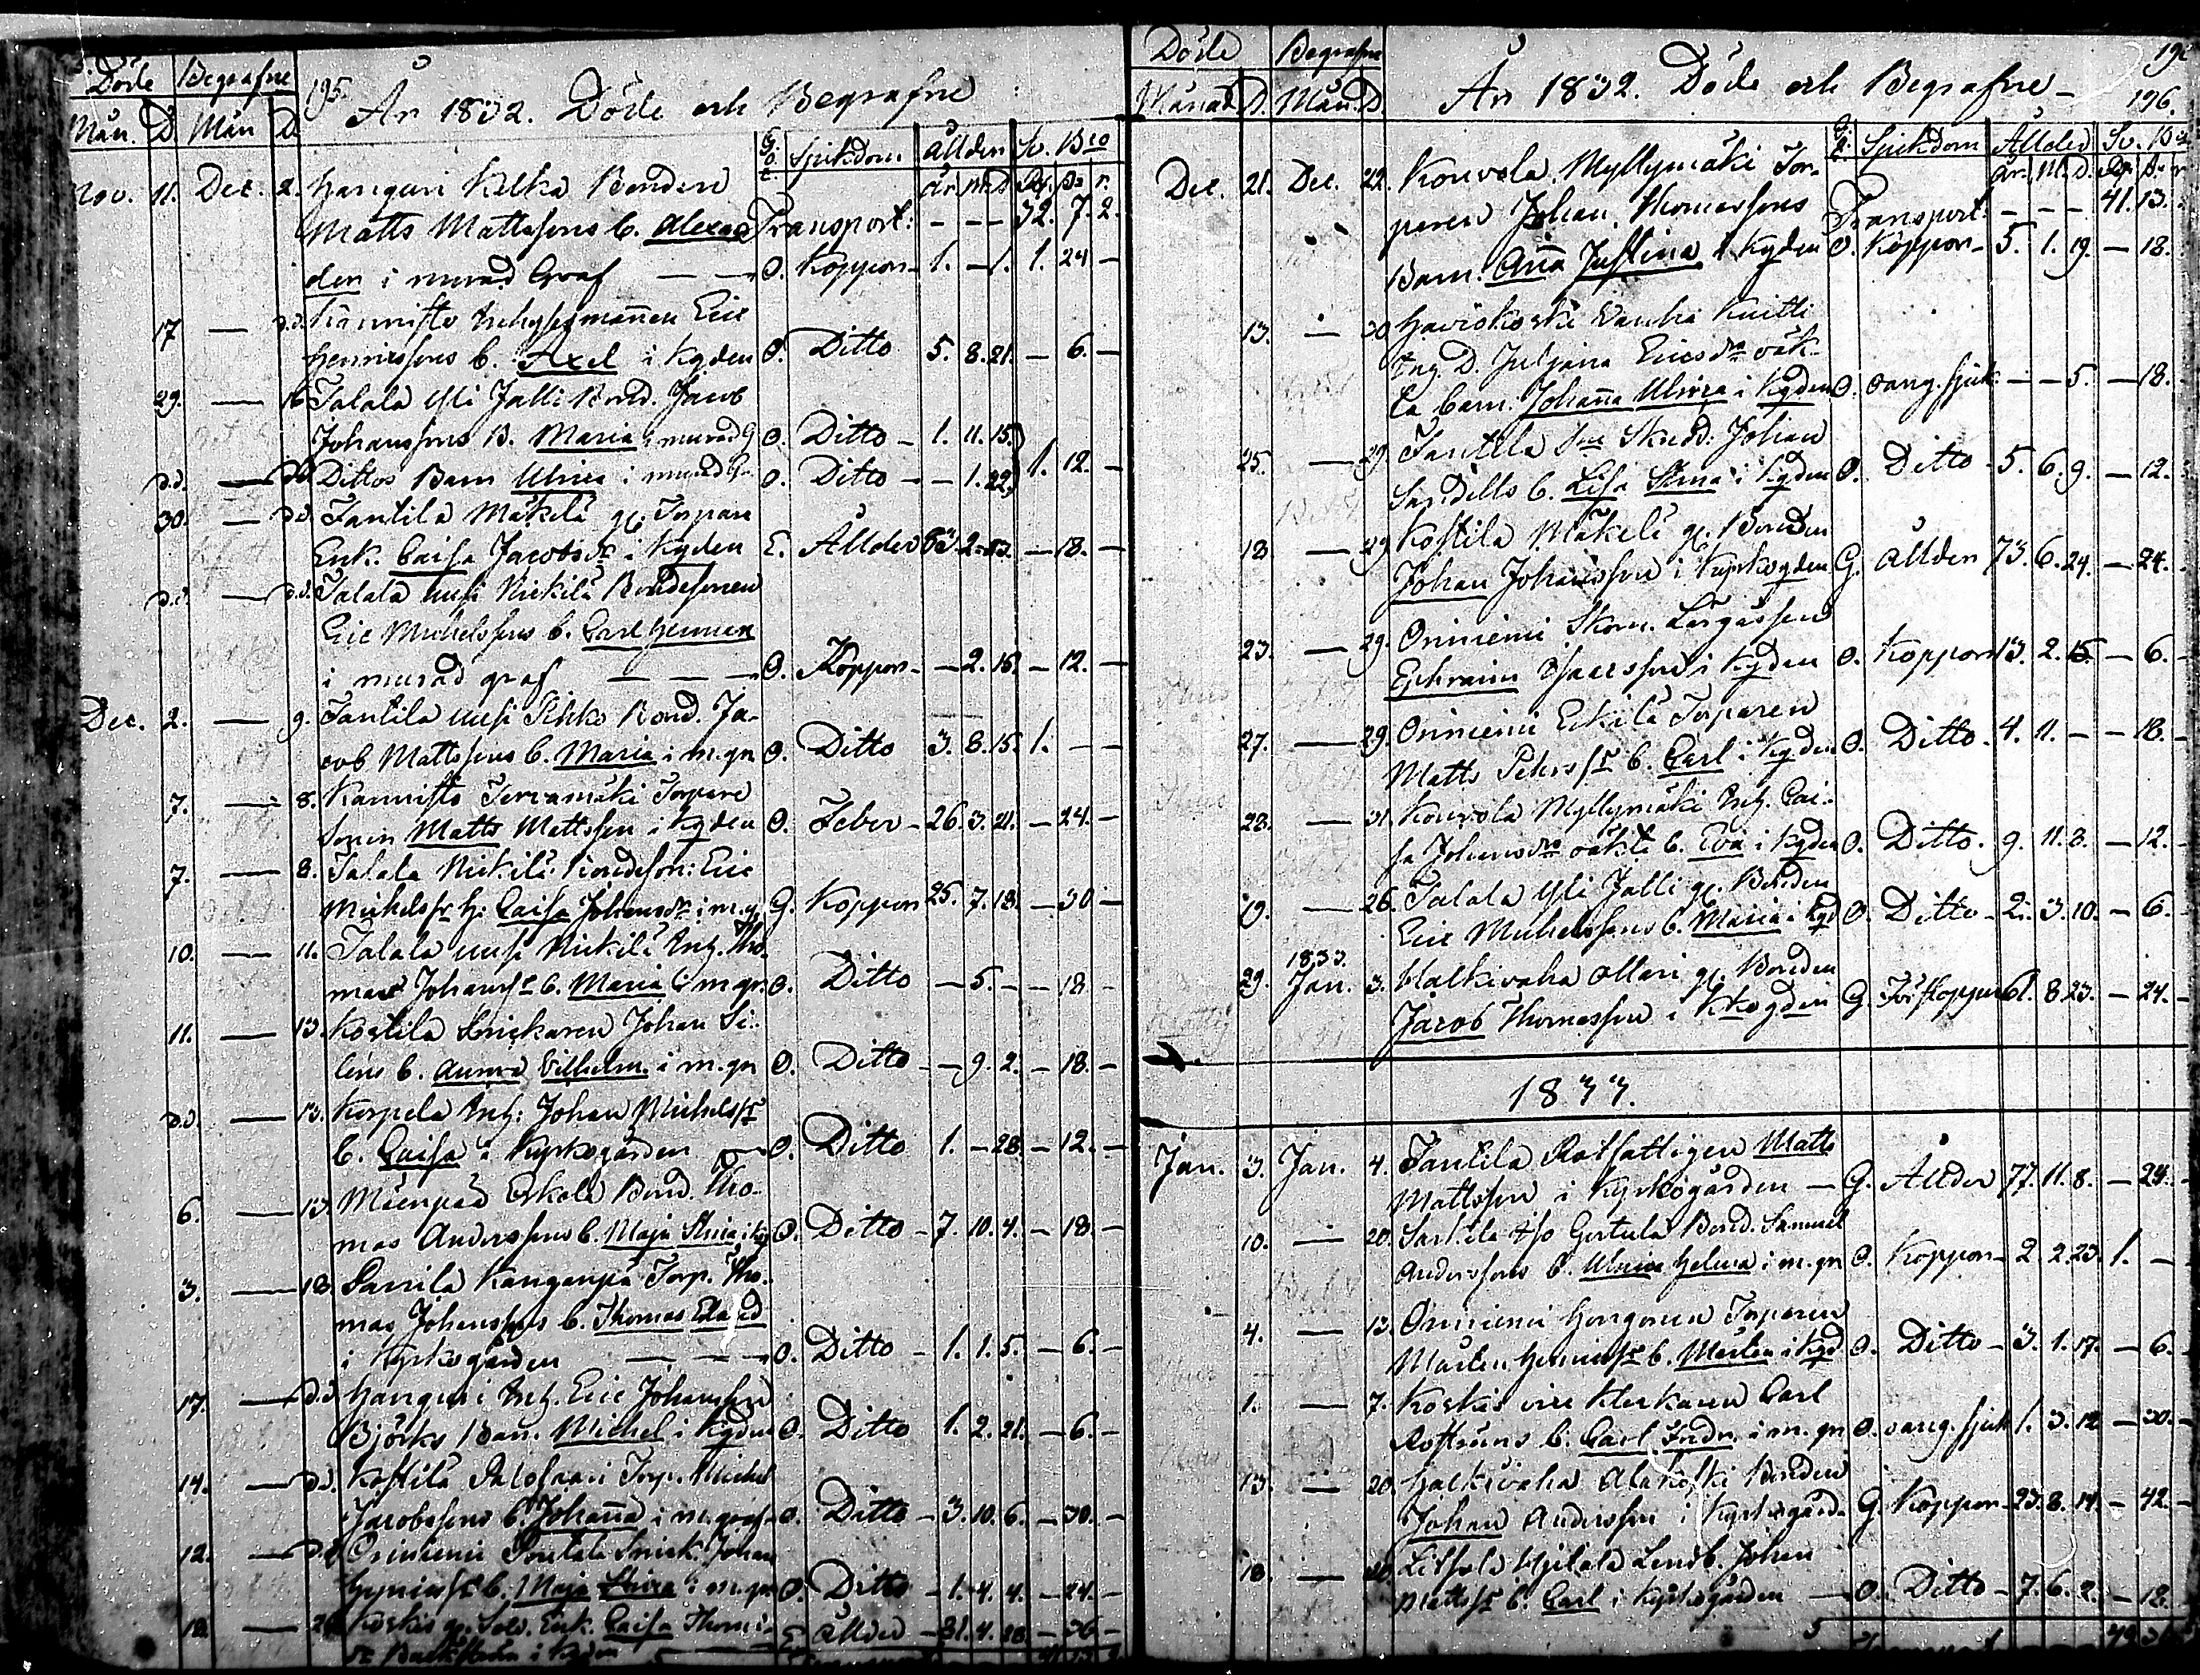 Döde Begrafne 195. År 1832. Döde och Begrafne
Mån. D. Mån D. G. O. E. Sjukdom. Ållder Sv. Bco
År M. D. Rd. sk. r.
Nov. 11. Dec. 2. Hanguri Kelka Bonden
Matts Mattssons b. Alexan Transport: - - - 32. 7. 2.
den i murad Graf — — O. Koppor - 1. - 1. 1. 24 -
17 — d.d. Kannisto Inhysesmannen Eric
Henricssons b. Axel i Kgden O. Ditto 5. 8. 21. - 6. -
29. — 16 Talala Yli Jalli Bond. Jacob
Johanssons B. Maria i murad G O. Ditto - 1. 11. 15.
d.d. — d.d. Dittos Barn Ulrica i murad Gr. O. Ditto - - 1. 22. 1. 12. -
30. — d.d. Tantila Mäkelä gl. Torpare
Enk. Caisa Jacobsdr i Kgden E. Ållder 63. 2. - 18. -
d.d. — d.d. Talala uusi Nickilä Bondesonen
Eric Michelssons b. Carl Henric
i murad graf — — — O. Koppor - - 2. 16. - 12. -
Dec. 2. — 9. Tantila uusi Bond. Ja-
cob Mattssons b. Maria i m.gr O. Ditto 3. 8. 15. 1. - -
7. — 8. Kannisto Tervamäki Torpare
sonen Matts Mattsson i Kgden O. Feber - 26. 3. 21. - 24. -
7. — 8. Talala Nickilä Bondeson: Eric
Michelssr h: Caisa Johansdr i m.g. G. Koppor 25. 7. 18. - 30 -
10. — 11. Talala uusi Nickilä Inh. Tho-
mas Johanssr b. Maria i m.gr. O. Ditto - 5. - - 18 -
11. — 13. Kostila Snickaren Johan Si-
léns b. Aurora Vilhelm. i m.gr O. Ditto - - 9. 2. - 18. -
d.d. — 13. Korpela Inh: Johan Michelssr
b. Caisa i Kyrkogården — O. Ditto 1. - 28. - 12. -
6. — 13. Mäenpää Eskola Bond. Tho-
mas Anderssons b. Maja Stina i Kg O. Ditto - 7. 10. 4. - 18. -
3. — 13 Sarrila Kanganpä Torp. Tho-
mas Johanssons b. Thomas Edvard
i Kyrkogården — — — O. Ditto - 1. 1. 5. - 6. -
17. — d.d. Hanguri Inh. Eric Johansson
Björks Barn. Michel i Kgden O. Ditto 1. 2. 21. - 6. -
14. — d.d. Kostila Palosaari Torp. Michel
Jacobssons b. Johanna i m.graf O. Ditto - 3. 10. 6. - 30. -
12. — d.d. Orinienni Snick. Johan
b. Maja Stina i m.gr O. Ditto - 1. 4. 4. - 24. -
18. — 26. Koskis gl. Sold. Enk. Caisa Thom
i Kgden E. Ållder - 81. 4. 28. - 36 -
Döde Begrafne 196
Månad. D. Mån. D. År 1832. Döde och Begrafne - 196.
G. O. E. Sjukdom Ållder Sv. Bco
År. M. D. Rd.
Dec. 21. Dec. 22. Kouvola Myllymäki Tor-
paren Johan Thomassons Transport. - - - 41. 13.
Barn. Anna Justina i Kgden O. Koppor - 5. 1. 19. - 18.
13. — 30 Havioskoski Vanha Knitti
Inh. D. Juljana Ericsdrs oäk-
ta barn. Johanna Ulrica i Kgden O. oang. sjuk: - - 5. - 18.
25. — 29 Tantila Skrädd: Johan
Sandells b. Lisa Stina i Kgden O. Ditto - 5. 6. 9. - 12.
18 — 29 Kostila Mäkelä gl. Bonden
Johan Johansson i Kyrkogden G. Ållder 73. 6. 24. - 24.
23. — 29. Orinienni Skom. Lärgossen
Ephraim Isacsson i Kgden O. Koppor 13. 2. 15. - 6.
27. — 29. Orinienni Eskilä Torparen
Matts Pehrssr b. Carl i Kgden O. Ditto. 4. 11. - - 18.
28. — 31 Kouvola Myllymäki Inh. Cai-
sa Johansdrs oäkta b. Eva i Kgden O. Ditto. 9. 11. 8. - 12.
19. — 26. Talala Yli Jalli gl. Bonden
Eric Michelssons b. Maria i Kgd O. Ditto - 2. 3. 10. - 6.
1833.
29. Jan. 3. Halkivaha Ollari gl. Bonden
Jacob Thomasson i Kkogden G. 61. 8. 23. - 24. -
1833.
Jan. 3. Jan. 4. Tantila Rotfattigen Matts
Mattsson i Kyrkogården — G. Ållder 77. 11. 8. - 24. -
10. — 20. Sarkila Iso Gertula Bond. Samuel
Anderssons b. Ulrica Helena i m.gr O. Koppor - 2. 2. 23. 1. -
4. — 13. Orinienni Hongonen Torparen
Mårten Henricssr b. Mårten i Kgd O. Ditto - 3. 1. 17. - 6.
1. — 7. Koskis vice Klockaren Carl
b. Carl Fredr. i m.gr O. oang. sjuk 1. 3. 12 - 30.
13. — 20. Halkivaha Alakoski Bonden
Johan Andersson i Kyrkogård. G. Koppor - 23. 8. 14. - 42. -
18. — 20. Johan
Mattssr b. Carl i Kyrkogården — O. Ditto - 7. 6. 2. - 12.